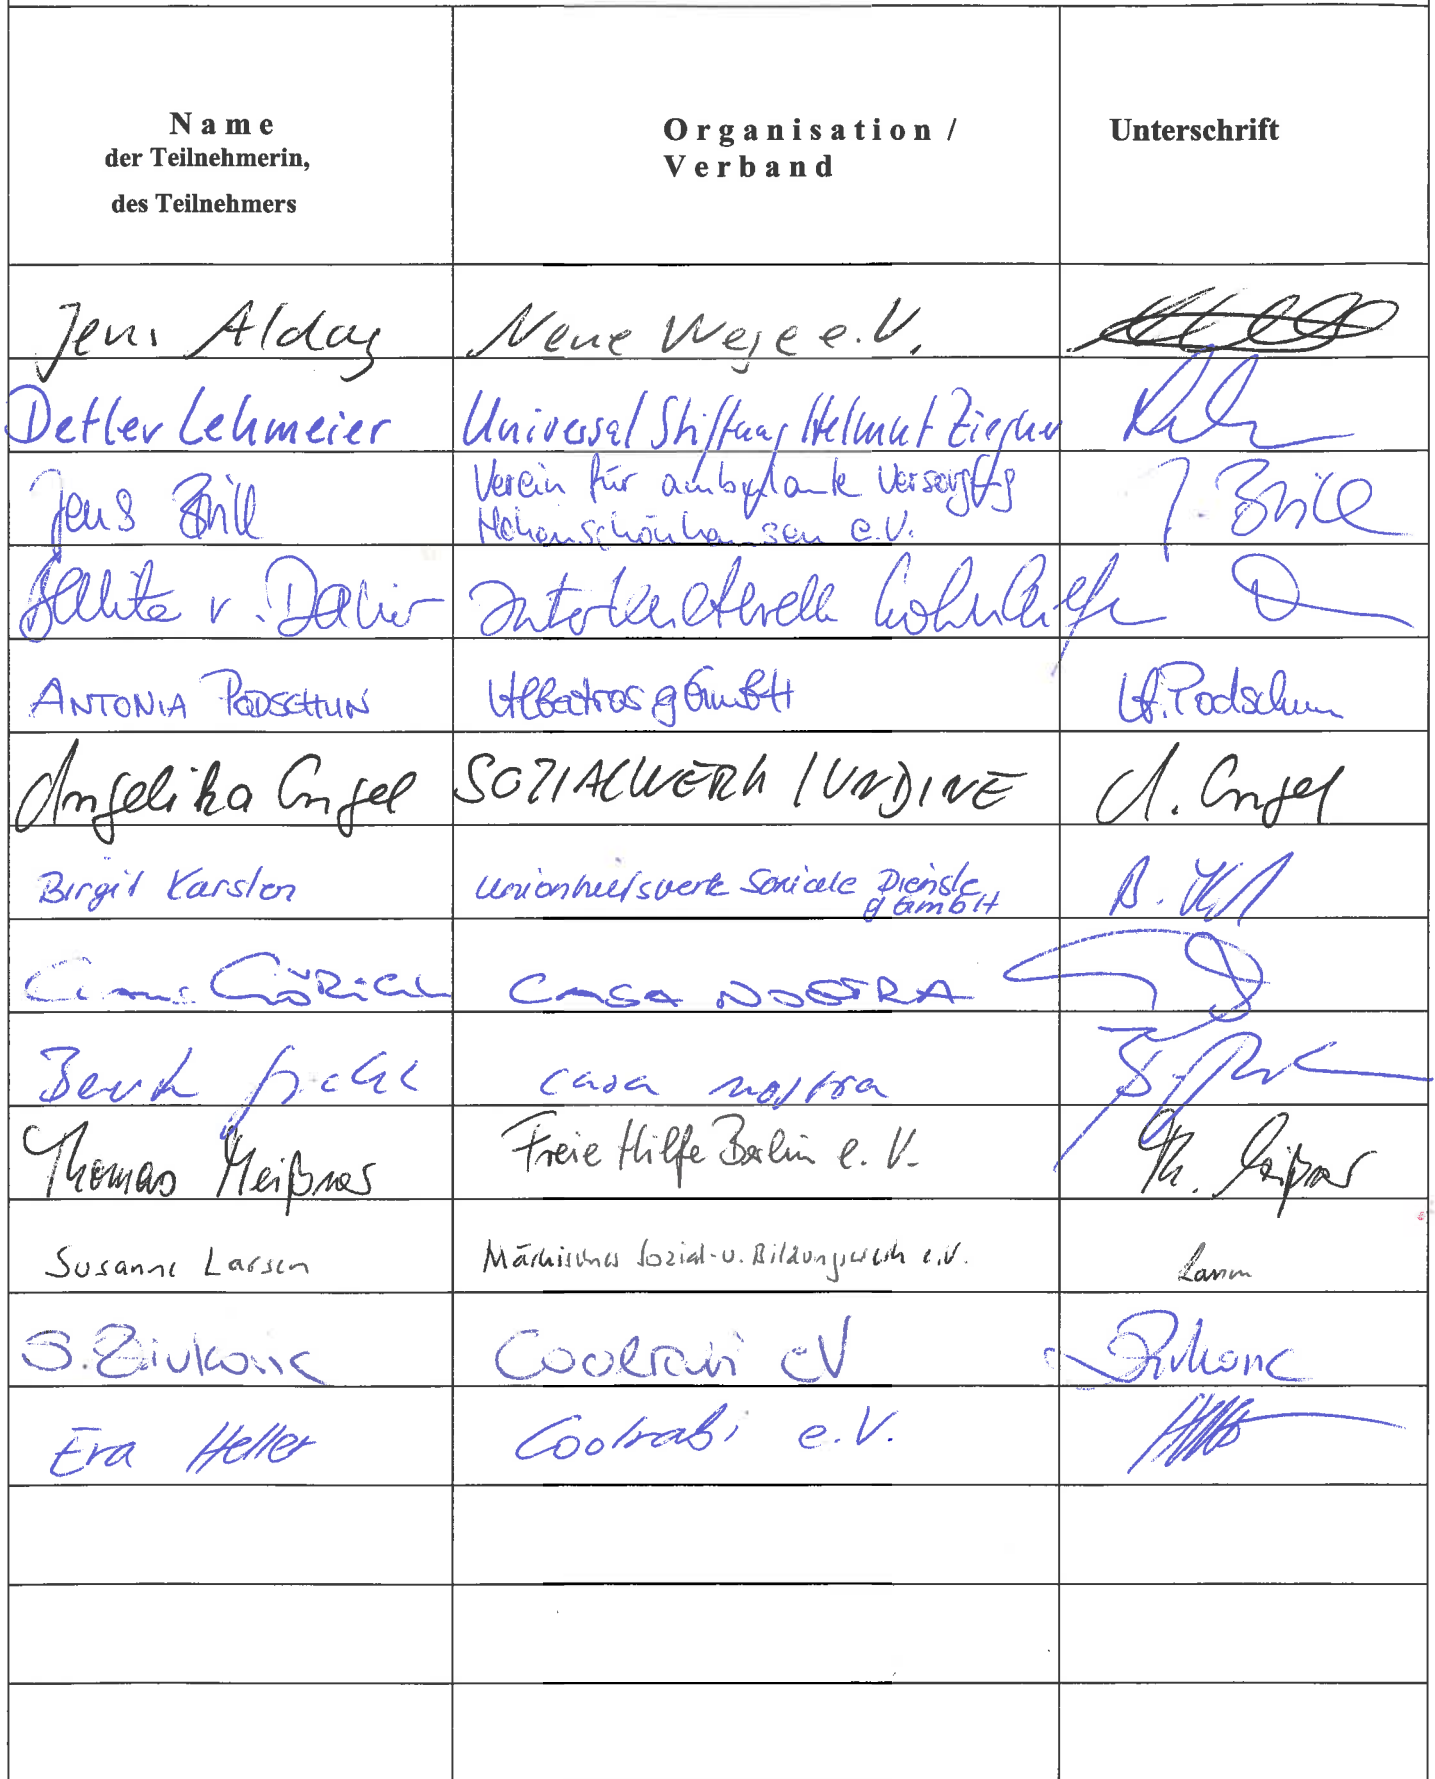 Name
der Teilnehmerin,
des Teilnehmers
Organisation /
Verband
Unterschrift
Jens Aldag Neue Wege e.V.
Detlev Lehmeier Universal Stiftung Helmut Ziegner
Jens Brill Verein für ambulante Versorgung Hohenschönhausen e.V. J. Brill
v. Interkulturelle Wohnhilfe
ANTONIA PODSCHUN Albatros gGmbH A. Podschun
Angelika Engel SOZIALWERK / UNDINE A. Engel
Birgit Karsten Unionhilfswerk Soziale Dienste gGmbH
GÖRICH CASA NOSTRA
casa nostra
Thomas Meißner Freie Hilfe Berlin e.V. Th. Meißner
Susanne Larsen Märkisches Sozial- u. Bildungswerk e.V. Larsen
S. Zivkovic Coolrabi eV Zivkovic
Eva Heller Coolrabi e.V.